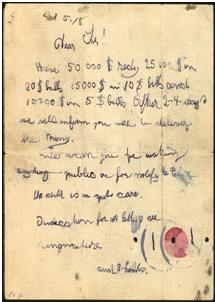 Dear Sir!
Have 50.000 $ redy 25 000 $ in
20 $ bills 15000 $ in 10 $ bills and
10000 $ in 5 $ bills After 2-4 days
we will inform you were to deliver
the Mony.
We warn you for making
anyding public or for notify the
the child is in gut care.
Indication for all letters are
singnature
and 3 holds.